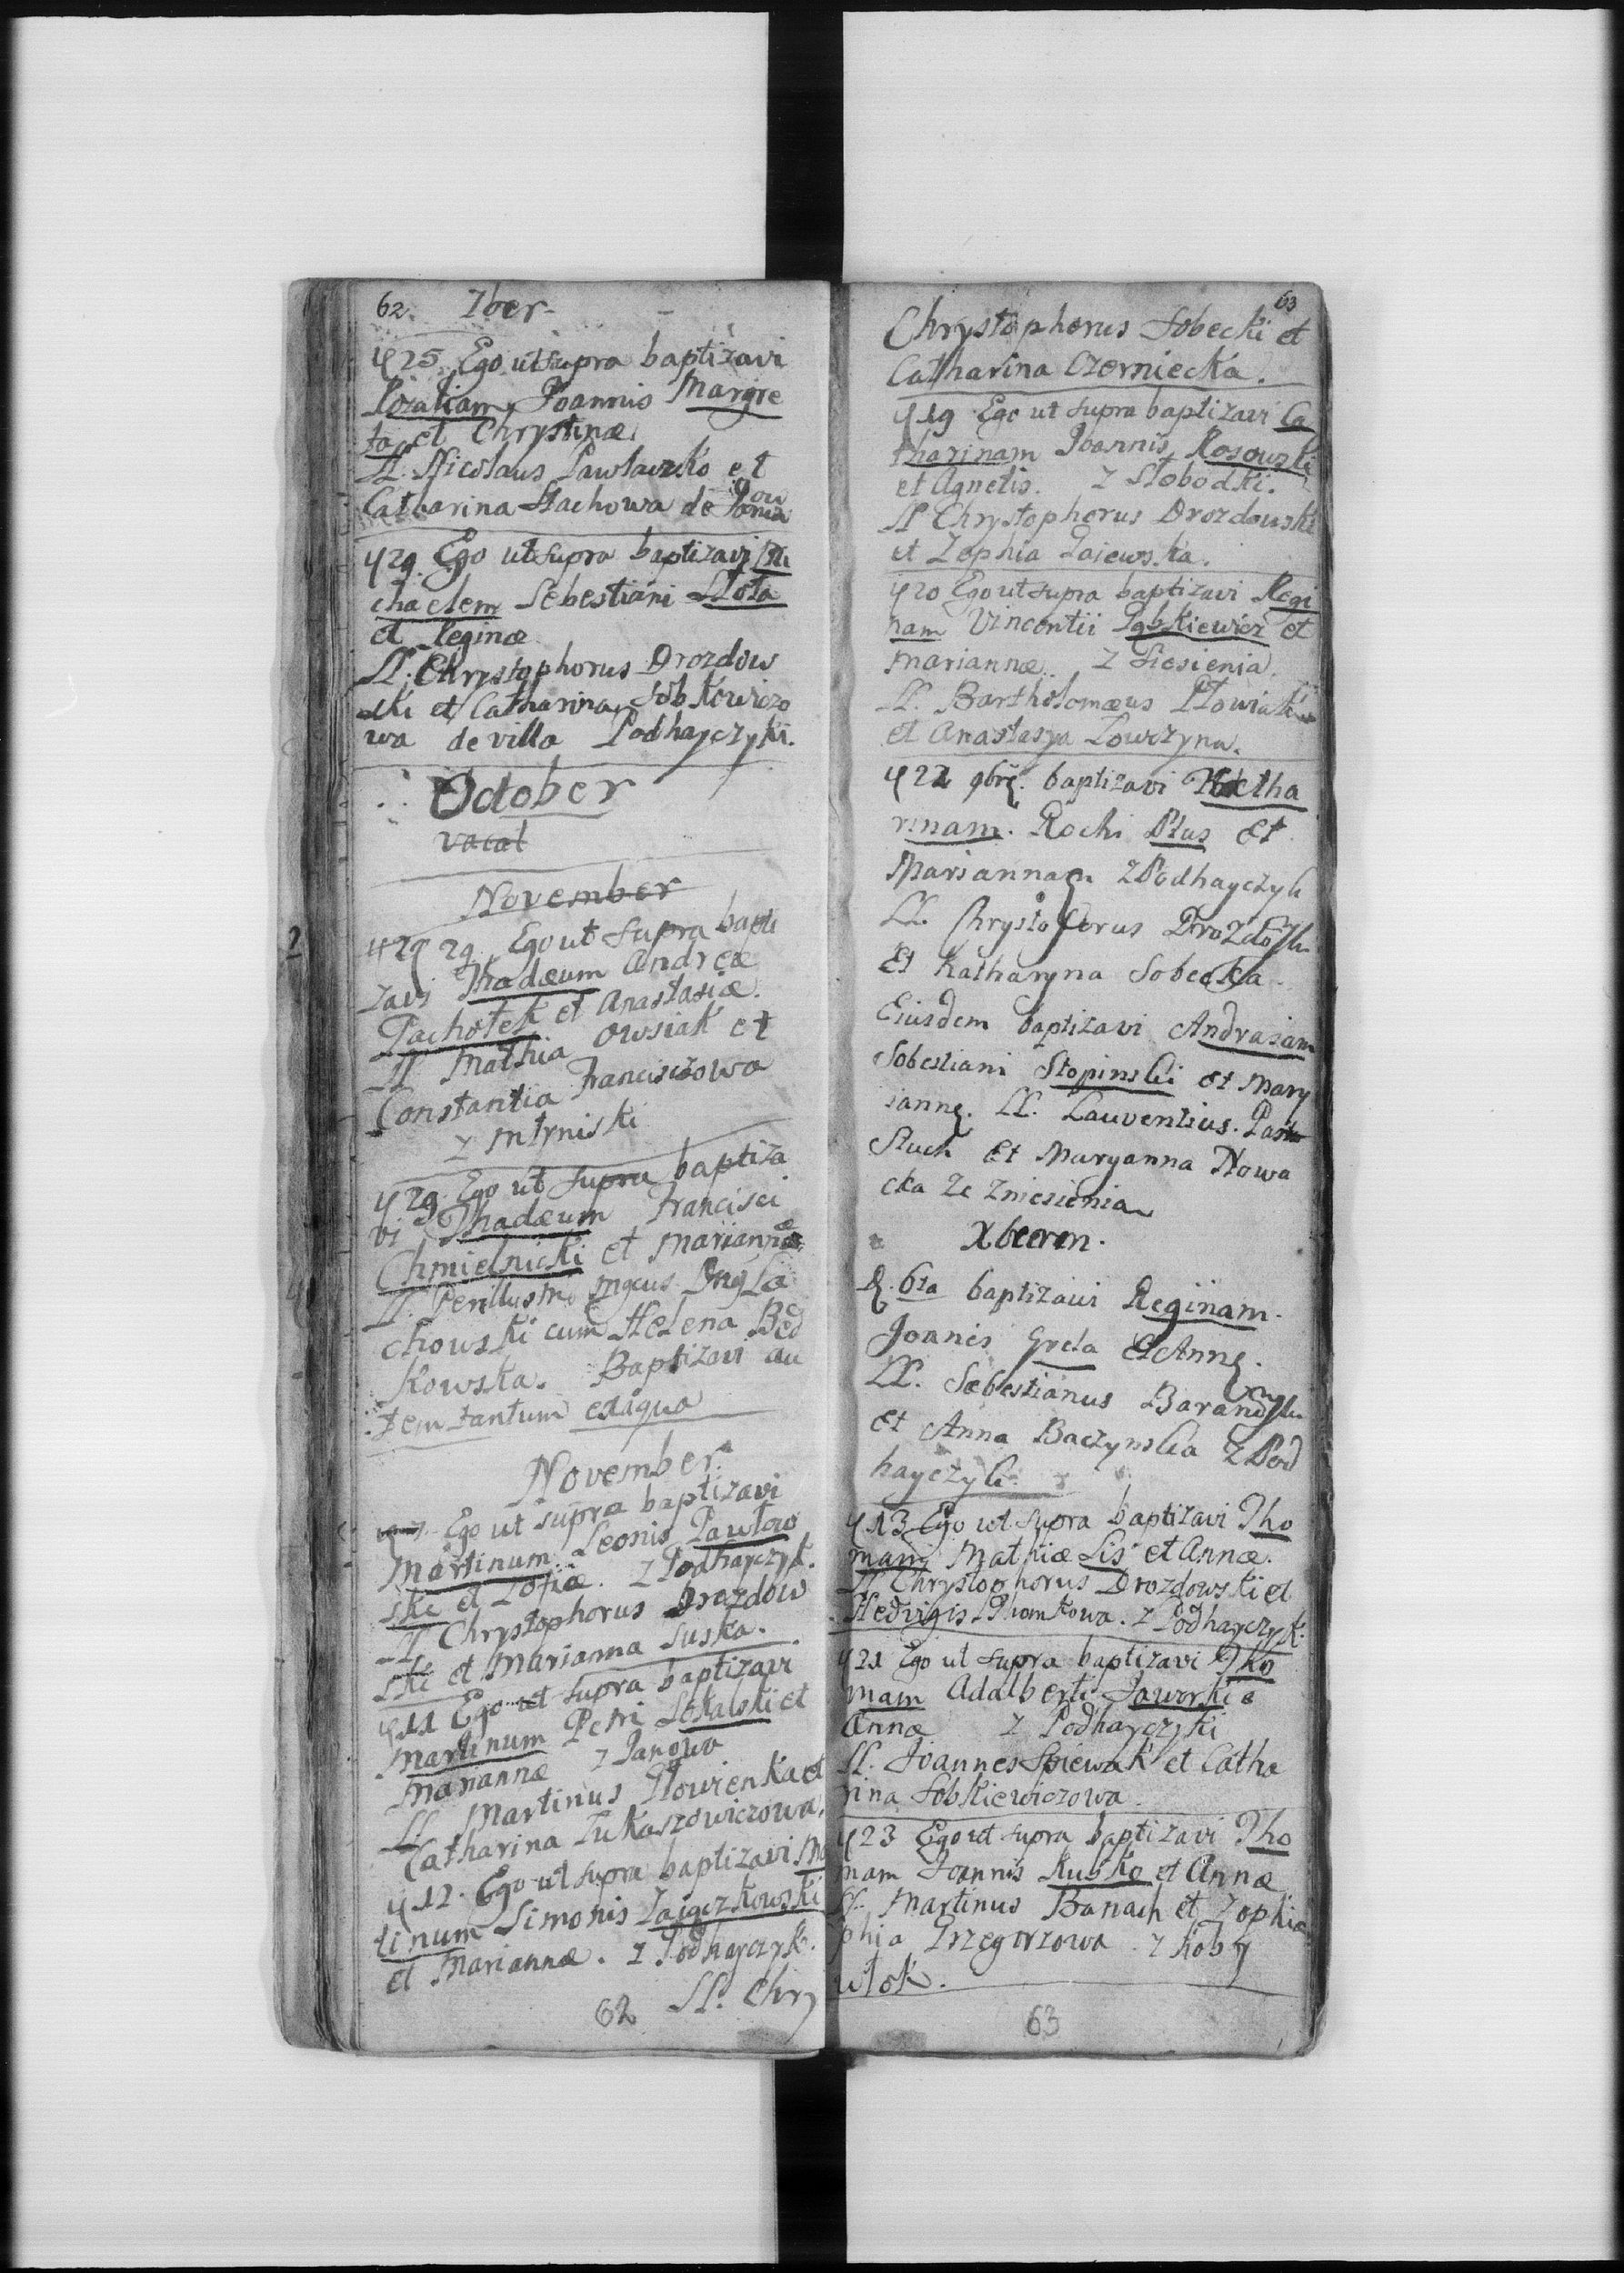 62. 7ber
25 Ego ut supra baptizavi
Rozaliam Joannis Margre
ta et Chrystinæ
LL. Nicolaus Pawlaczko et
Catharina Stachowa de
29. Ego ut supra baptizavi Mi
chaelem Sebestiani Słota
et Reginæ
LL. Chrystophorus Drozdow
ski et Catharina Sobkowiczo
wa de villa Podhayczyki.
October
vacat
November
29 29 Ego ut supra bapti
zavi Thadæum Andreæ
Pachołek et Anastasiæ.
LL Mathia Owsiak et
Constantia Franciszkowa
z
29. Ego ut supra baptiza
vi Thadæum Francisci
Chmielnicki et Mariannæ
LL. Perillustris Mgcus Dnus La
chowski cum Helena Bed
kowska. Baptizavi au
tem tantum ex aqua
November.
7. Ego ut supra baptizavi
Martinum Leonis Pawłow
ski et Zofiæ. z Podhayczyk.
LL Chrystophorus Drozdow
ski et Marianna Suska.
11 Ego ut supra baptizavi
Martinum Petri Sokalski et
Mariannæ z Janowa
LL. Martinus Płowienka et
Catharina Łukaszowiczowa.
12. Ego ut supra baptizavi Ma
tinum Simonis Zaiączkowski
et Mariannæ. z Podhayczyk.
LL. Chry
62
63
Chrystophorus Sobecki et
Catharina Czerniecka.
19 Ego ut supra baptizavi Ca
tharinam Joannis Kosowski
et Agnetis. z Słobodki.
LL Chrystophorus Drozdowski
et Zophia Gaiewska.
20 Ego ut supra baptizavi Regi
nam Vincentii Ząbkiewicz et
Mariannæ.
LL. Bartholomæus Płowiak
et Anastasya Łowczyna.
22 9brę. baptizavi Katha
rinam. Rochi Plus et
Mariannæ z Podhayczyk
LL. Chrystoforus Drozdowski
Et Katharyna Sobecka.
Eiusdem baptizavi Andrasiam
Sobestiani Stopinski et Mary
iannę. LL. Lauventius. Pas
stuch Et Maryanna Nowa
cka ze Zniesienia
Xbeerem.
D. 6ta baptizavi Reginam.
Joanis Greta Et Annę.
LL. Sæbestianus Baranski
et Anna Baczynska z Pod
hayczyk.
13 Ego ut supra baptizavi Tho
mam Mathiæ Lis et Annæ.
LL Chrystophorus Drozdowski et
Hedvigis Thomkowa. z Podhayczyk.
21 Ego ut supra baptizavi Tho
mam Adalberti Jaworski e
Annæ z Podhayczyki
LL. Joannes Spiewak et Catha
rina Sobkiewiczowa.
23 Ego ut supra baptizavi Tho
mam Joannis Kusko et Annæ
LL. Martinus Banach et Zophia
phia Grzegorzowa z Koby
ułok.
63